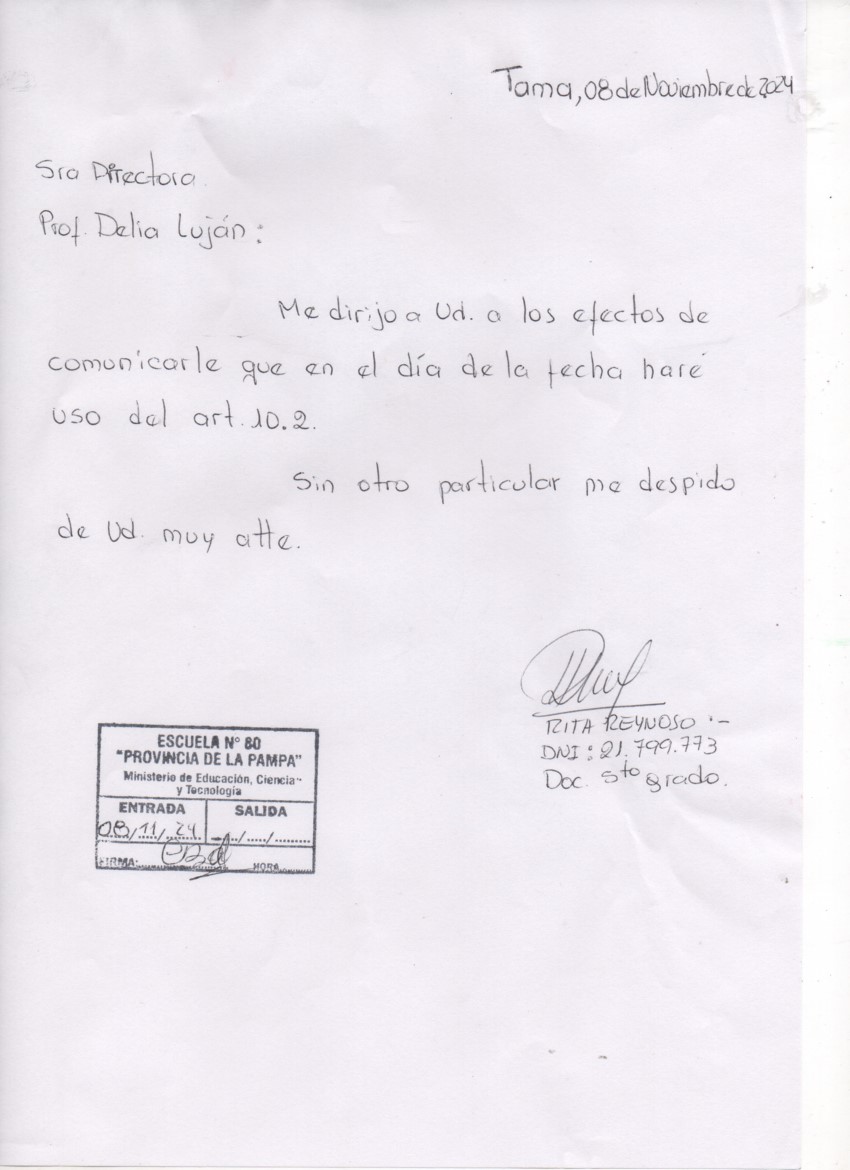 Tama, 08 de Noviembre de 2024
Sra Directora
Prof. Delia Luján:
Me dirijo a Ud. a los efectos de
comunicarle que en el día de la fecha haré
uso del art. 10.2.
Sin otro particular me despido
de Ud. muy atte.
RITA REYNOSO .-
DNI: 21.799.773
Doc. 5to grado.
ESCUELA N° 80
"PROVINCIA DE LA PAMPA"
Ministerio de Educación, Ciencia
y Tecnología
ENTRADA SALIDA
08/11/24 ..../..../........
FIRMA: HORA